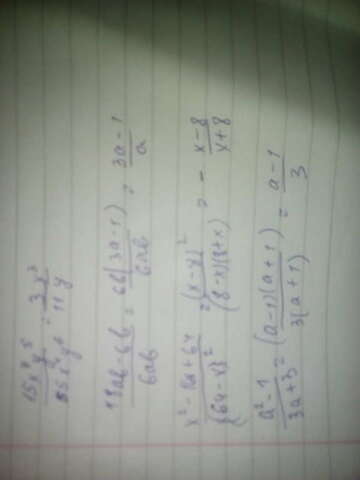 15x⁴y⁵/55x²y⁶ = 3x²/11y
18ab-6b/6ab = 6b(3a-1)/6ab = 3a-1/a
x²-16x+64/(64-x)² = (x-8)²/(8-x)(8+x) = - x-8/x+8
a²-1/3a+3 = (a-1)(a+1)/3(a+1) = a-1/3